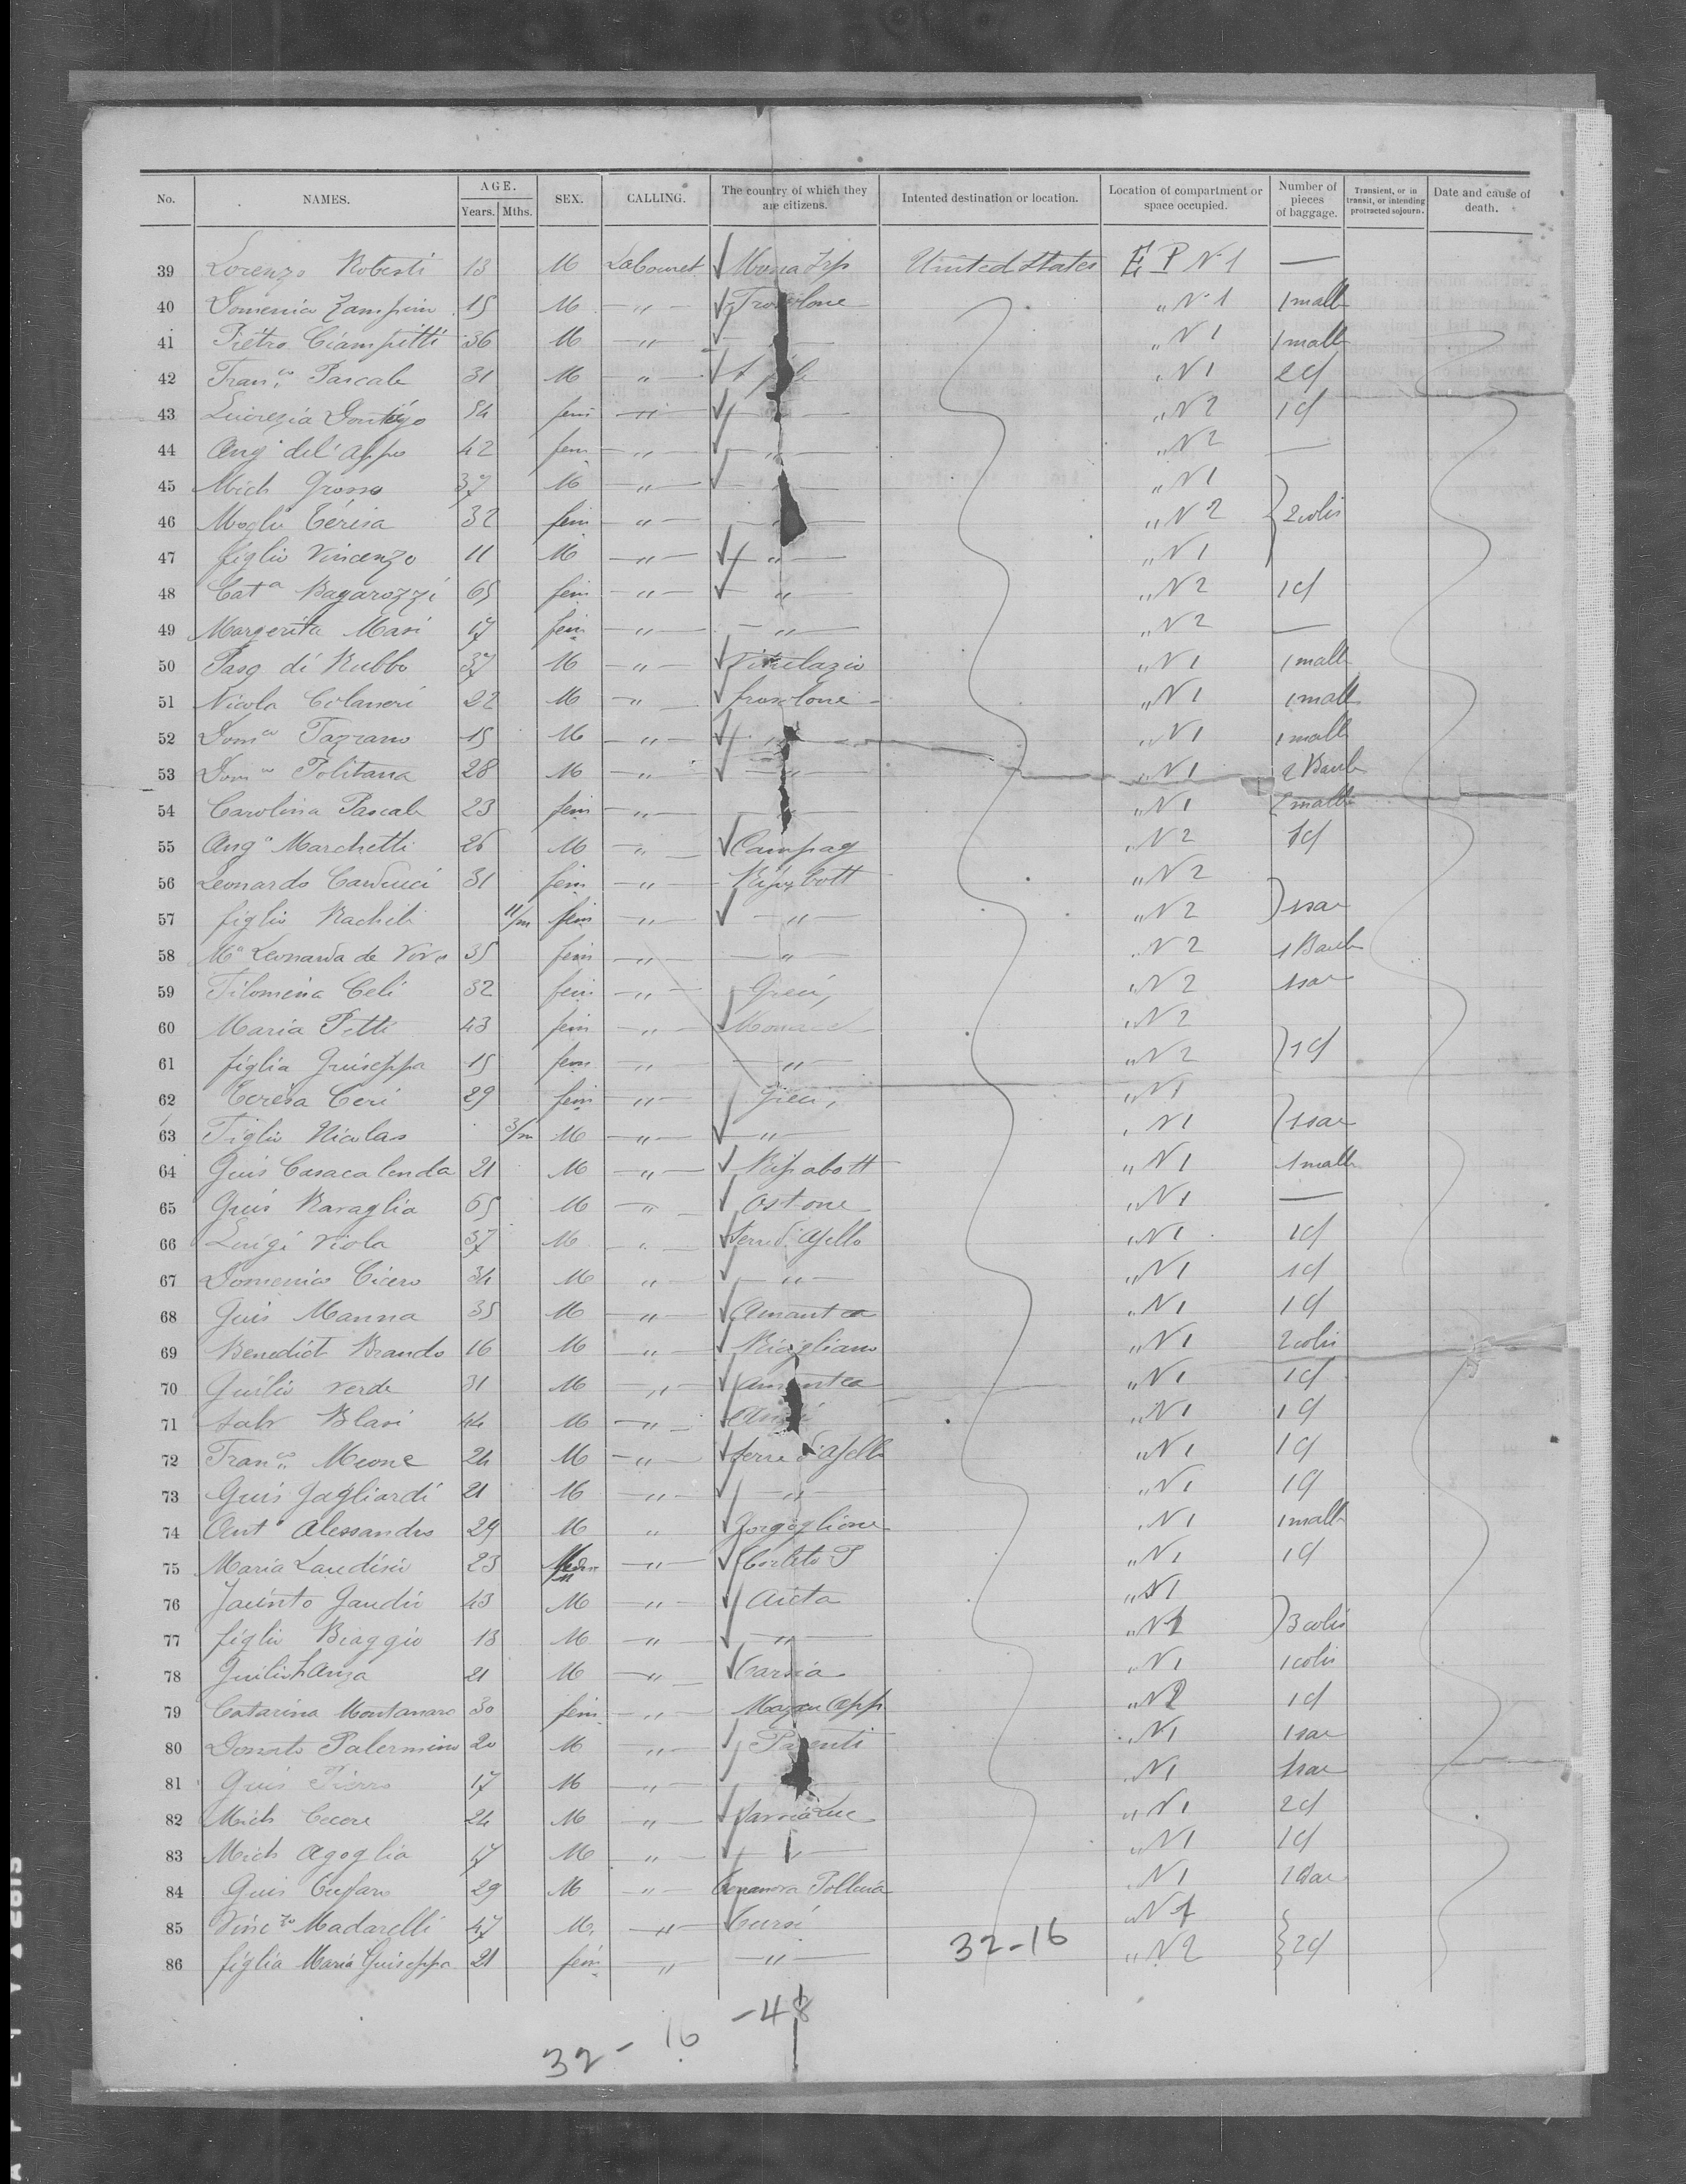 No. NAMES. AGE. Years. Mths. SEX. CALLING. The country of which they are citizens. Intented destination or location. Location of compartment or space occupied. Number of pieces of baggage. Transient, or in transit, or intending protracted sojourn. Date and cause of death.
39 Lorenzo Roberti 13 M Labouret United States E P N 1 —
40 Domenico Zampini 15 M — " — " N 1 1 malle
41 Pietro Ciampitti 36 M — " — " N 1 1 malle
42 Fran.co Pascale 31 M " — " N 1 2 cf
43 Lucrezia 54 fem — " — " N 2 1 cf
44 Ang. del' 42 fem — " — " N 2 —
45 Mich Grosso 37 M — " — " N 1
46 Moglie Térésa 32 fem — " — " N 2 2 colis
47 figlio Vincenzo 11 M — " — " — " N 1
48 Cat.a Bagarozzi 65 fem — " — " " N 2 1 cf
49 Margerita Masi 17 fem — " — — " — " N 2 —
50 Pasq di Rubbo 37 M — " — Vitulazio " N 1 1 malle
51 Nicola Colaneri 22 M — " — Frosolone " N 1 1 malle
52 Dom.co Fazzano 15 M — " — " N 1 1 malle
53 Dom.co Politana 28 M — " — — " — " N 1 2 Baule
54 Carolina Pascale 23 fem — " — " N 1 2 malle
55 Ang.o Marchetti 26 M — " — Campag " N 2 1 cf
56 Leonardo Carducci 31 fem — " — Ripabott " N 2
57 figlio Rachele 11/m fem — " — — " " N 2 1 sac
58 M.a Leonarda de Vivo 35 fem — " — — " — " N 2 1 Baule
59 Filomena Celi 32 fem — " — " N 2 1 sac
60 Maria Petti 43 fem — " — " N 2
61 figlia Guiseppa 15 fem — " — — " — " N 2 1 cf
62 Teresa Ceri 29 fem — " — " N 1
63 Figlio Nicolas 3/m M — " — — " — " N 1 1 sac
64 Guis Casacalenda 21 M — " — Ripabott " N 1 1 malle
65 Guis Ravaglia 65 M — " — Ostone " N 1 —
66 Luigi Viola 37 M " Serra d'Ajello " N 1 1 cf
67 Domenico Cicero 34 M " — — " — " N 1 1 cf
68 Guis Manna 35 M — " — Amantea " N 1 1 cf
69 Benedict Brando 16 M — " — Ricigliano " N 1 2 colis
70 Guilio Verde 31 M — " — Amantea " N 1 1 cf
71 Salv Blasi 44 M — " — " N 1 1 cf
72 Fran.co Meone 24 M — " — Serra d'Ajello " N 1 1 cf
73 Guis Gagliardi 21 M — " — — " — " N 1 1 cf
74 Ant.o Alessandro 29 M " — Gorgoglione " N 1 1 malle
75 Maria Laudisio 23 fem — " — Corleto P " N 1 1 cf
76 Jacinto Gaudio 43 M — " — Aieta " N 1
77 figlio Biaggio 13 M — " — — " — " N 1 3 colis
78 Guilio Lanza 21 M — " — " N 1 1 colis
79 Catarina Montanaro 30 fem — " — " N 2 1 cf
80 Donato Palermino 20 M " — Parenti " N 1 1 sac
81 Guis Pierro 17 M — " — " N 1 1 sac
82 Mich Cecere 24 M — " — " N 1 2 cf
83 Mich Agoglia 17 M " — — " — " N 1 1 cf
84 Guis Cuffaro 29 M — " — " N 1 1 sac
85 Vinc.zo Madarelli 47 M. — " — Cursi " N 1
86 figlia Maria Guiseppa 21 fem — " — — " — 32-16 " N 2 2 cf
-48
32 - 16